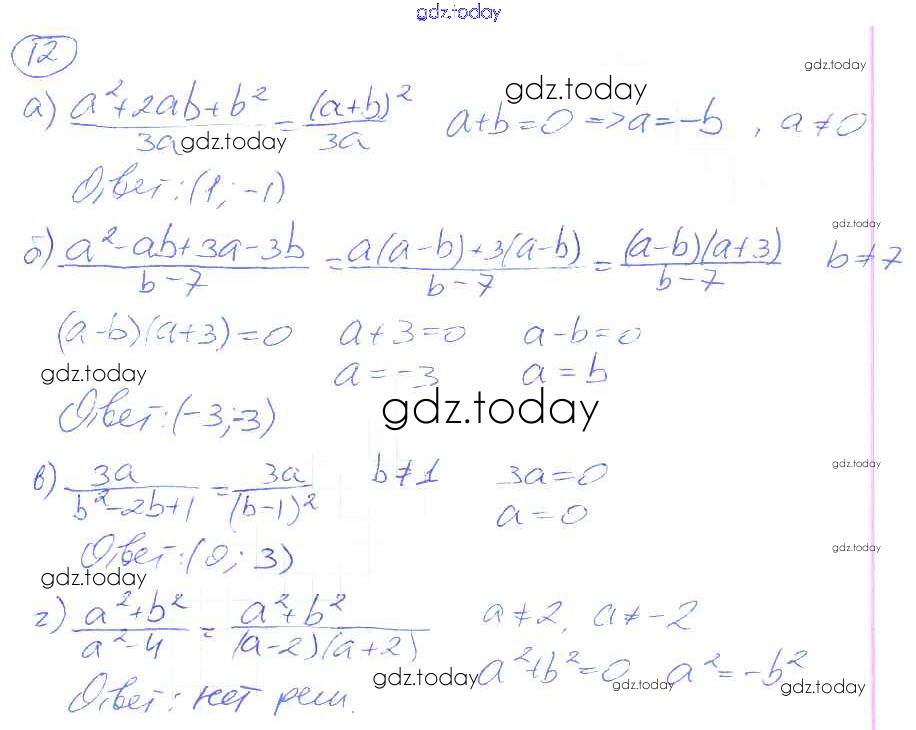 gdz.today
12
gdz.today
а) (a²+2ab+b²)/3a = (a+b)²/3a   a+b=0 => a=-b , a≠0
gdz.today
gdz.today
Ответ: (1; -1)
gdz.today
б) (a²-ab+3a-3b)/(b-7) = (a(a-b)+3(a-b))/(b-7) = ((a-b)(a+3))/(b-7)   b≠7
(a-b)(a+3)=0   a+3=0   a-b=0
gdz.today   a=-3   a=b
Ответ: (-3;-3)
gdz.today
gdz.today
в) 3a/(b²-2b+1) = 3a/(b-1)²   b≠1   3a=0
a=0
Ответ: (0; 3)
gdz.today
gdz.today
г) (a²+b²)/(a²-4) = (a²+b²)/((a-2)(a+2))   a≠2, a≠-2
gdz.today   a²+b²=0   a²=-b²
gdz.today   gdz.today
Ответ: нет реш.